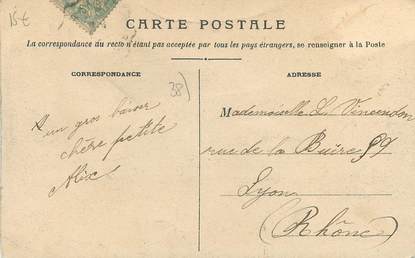 15€
CARTE POSTALE
La correspondance du recto n'étant pas acceptée par tous les pays étrangers, se renseigner à la Poste
CORRESPONDANCE
38)
un gros baiser
chère petite
Alix
ADRESSE
Mademoiselle L. Vincendon
rue de la Buire 59
Lyon
(Rhône)